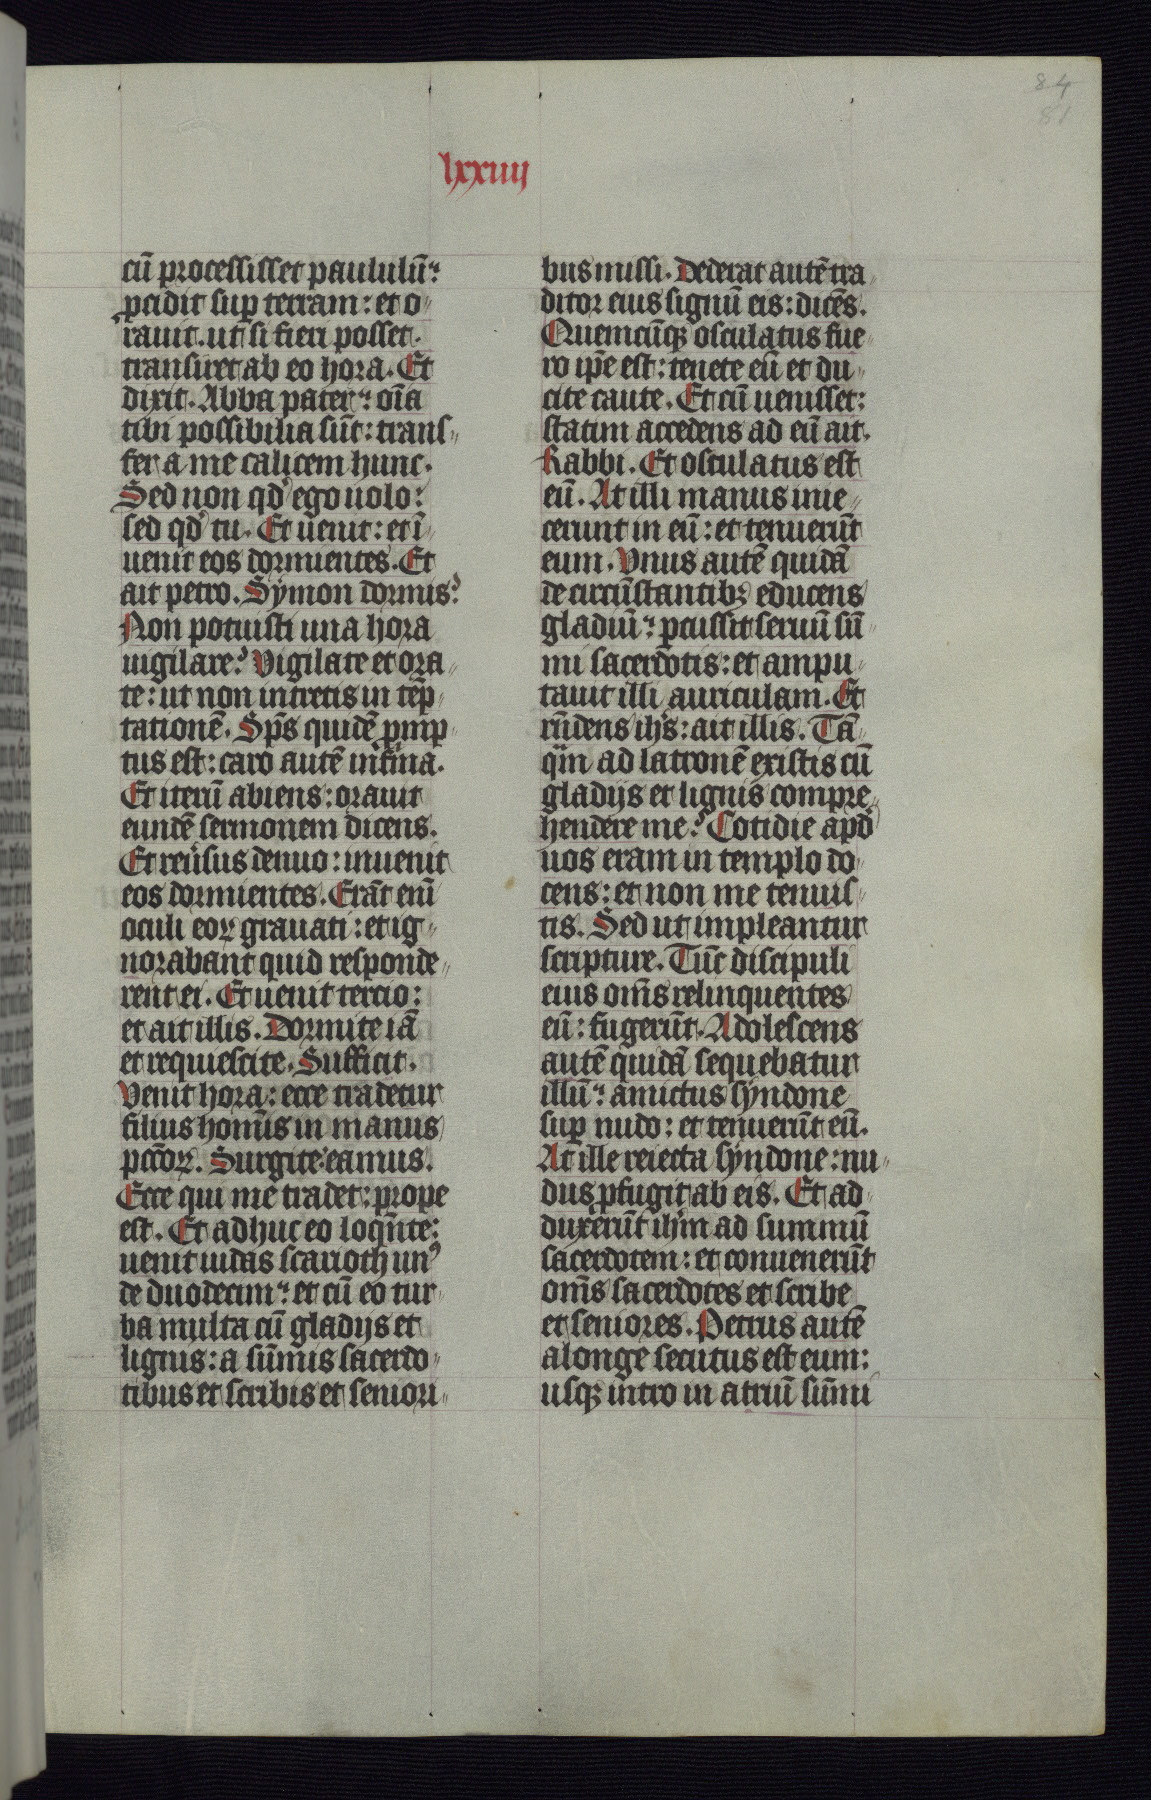 84
81
lxxiiij
cū processisset paululū:
ꝓcidit sup̱ terram: et o-
rauit. ut si fieri posset.
transiret ab eo hora. Et
dixit. Abba pater: oīa
tibi possibilia sūt: trans-
fer a me calicem hunc.
Sed non qd̓ ego uolo:
sed qd̓ tu. Et uenit: et ī
uenit eos dormientes. Et
ait petro. Symon dormis?
Non potuisti una hora
uigilare? Vigilate et ora-
te: ut non intretis in tēp-
tationē. Sp̄s quidē ꝓmp-
tus est: caro autē infirma.
Et iterū abiens: orauit
eundē sermonem dicens.
Et reūsus denuo: inuenit
eos dormientes. Erāt enī
oculi eoꝝ grauati: et ig-
norabant quid responde-
rent ei. Et uenit tercio:
et ait illis. Dormite iā
et requiescite. Sufficit.
Venit hora: ecce tradetur
filius homīs in manus
pccōꝝ. Surgite: eamus.
Ecce qui me tradet: prope
est. Et adhuc eo loqūte:
uenit iudas scarioth unꝰ
de duodecim: et cū eo tur-
ba multa cū gladijs et
lignis: a sūmis sacerdo-
tibus et scribis et seniori-
bus missi. Dederat autē tra-
ditor eius signū eis: dicēs.
Quemcūqꝫ osculatus fue-
ro ip̄e est: tenete eū et du-
cite caute. Et cū uenisset:
statim accedens ad eū ait.
Rabbi. Et osculatus est
eū. At illi manus inie-
cerunt in eū: et tenuerūt
eum. Vnus autē quidā
de circūstantibꝫ educens
gladiū: ꝑcussit seruū sū-
mi sacerdotis: et ampu-
tauit illi auriculam. Et
rn̄dens ih̄s: ait illis. Tā-
qm̄ ad latronē existis cū
gladijs et lignis compre-
hendere me? Cotidie apd̓
uos eram in templo do-
cens: et non me tenuis-
tis. Sed ut impleantur
scripture. Tūc discipuli
eius om̄s relinquentes
eū: fugerūt. Adolescens
autē quidā sequebatur
illū: amictus syndone
sup̱ nudo: et tenuerūt eū.
At ille reiecta syndone: nu-
dus ꝓfugit ab eis. Et ad-
duxerūt ih̄m ad summū
sacerdotem: et conuenerūt
om̄s sacerdotes et scribe
et seniores. Petrus autē
alonge secutus est eum:
usqꝫ intro in atriū sūmi